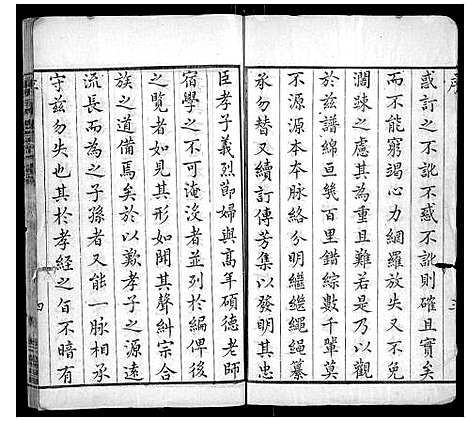 序
惑訂之不訛不惑不訛則確且實矣
而不能窮竭心力網羅放失又不免
濶疎之慮其為重且難若是乃以觀
於兹譜綿亘幾百里錯綜數千單莫
不源源本本脉絡分明繼繼繩繩纂
承勿替又續訂傳芳集以發明其忠
三
臣孝子義烈節婦與高年碩德老師
宿學之不可淹沒者並列於編俾後
之覽者如見其形如聞其聲糾宗合
族之道備焉矣於以歎孝子之源遠
流長而為之子孫者又能一脉相承
守兹勿失也其於孝經之旨不暗有
四